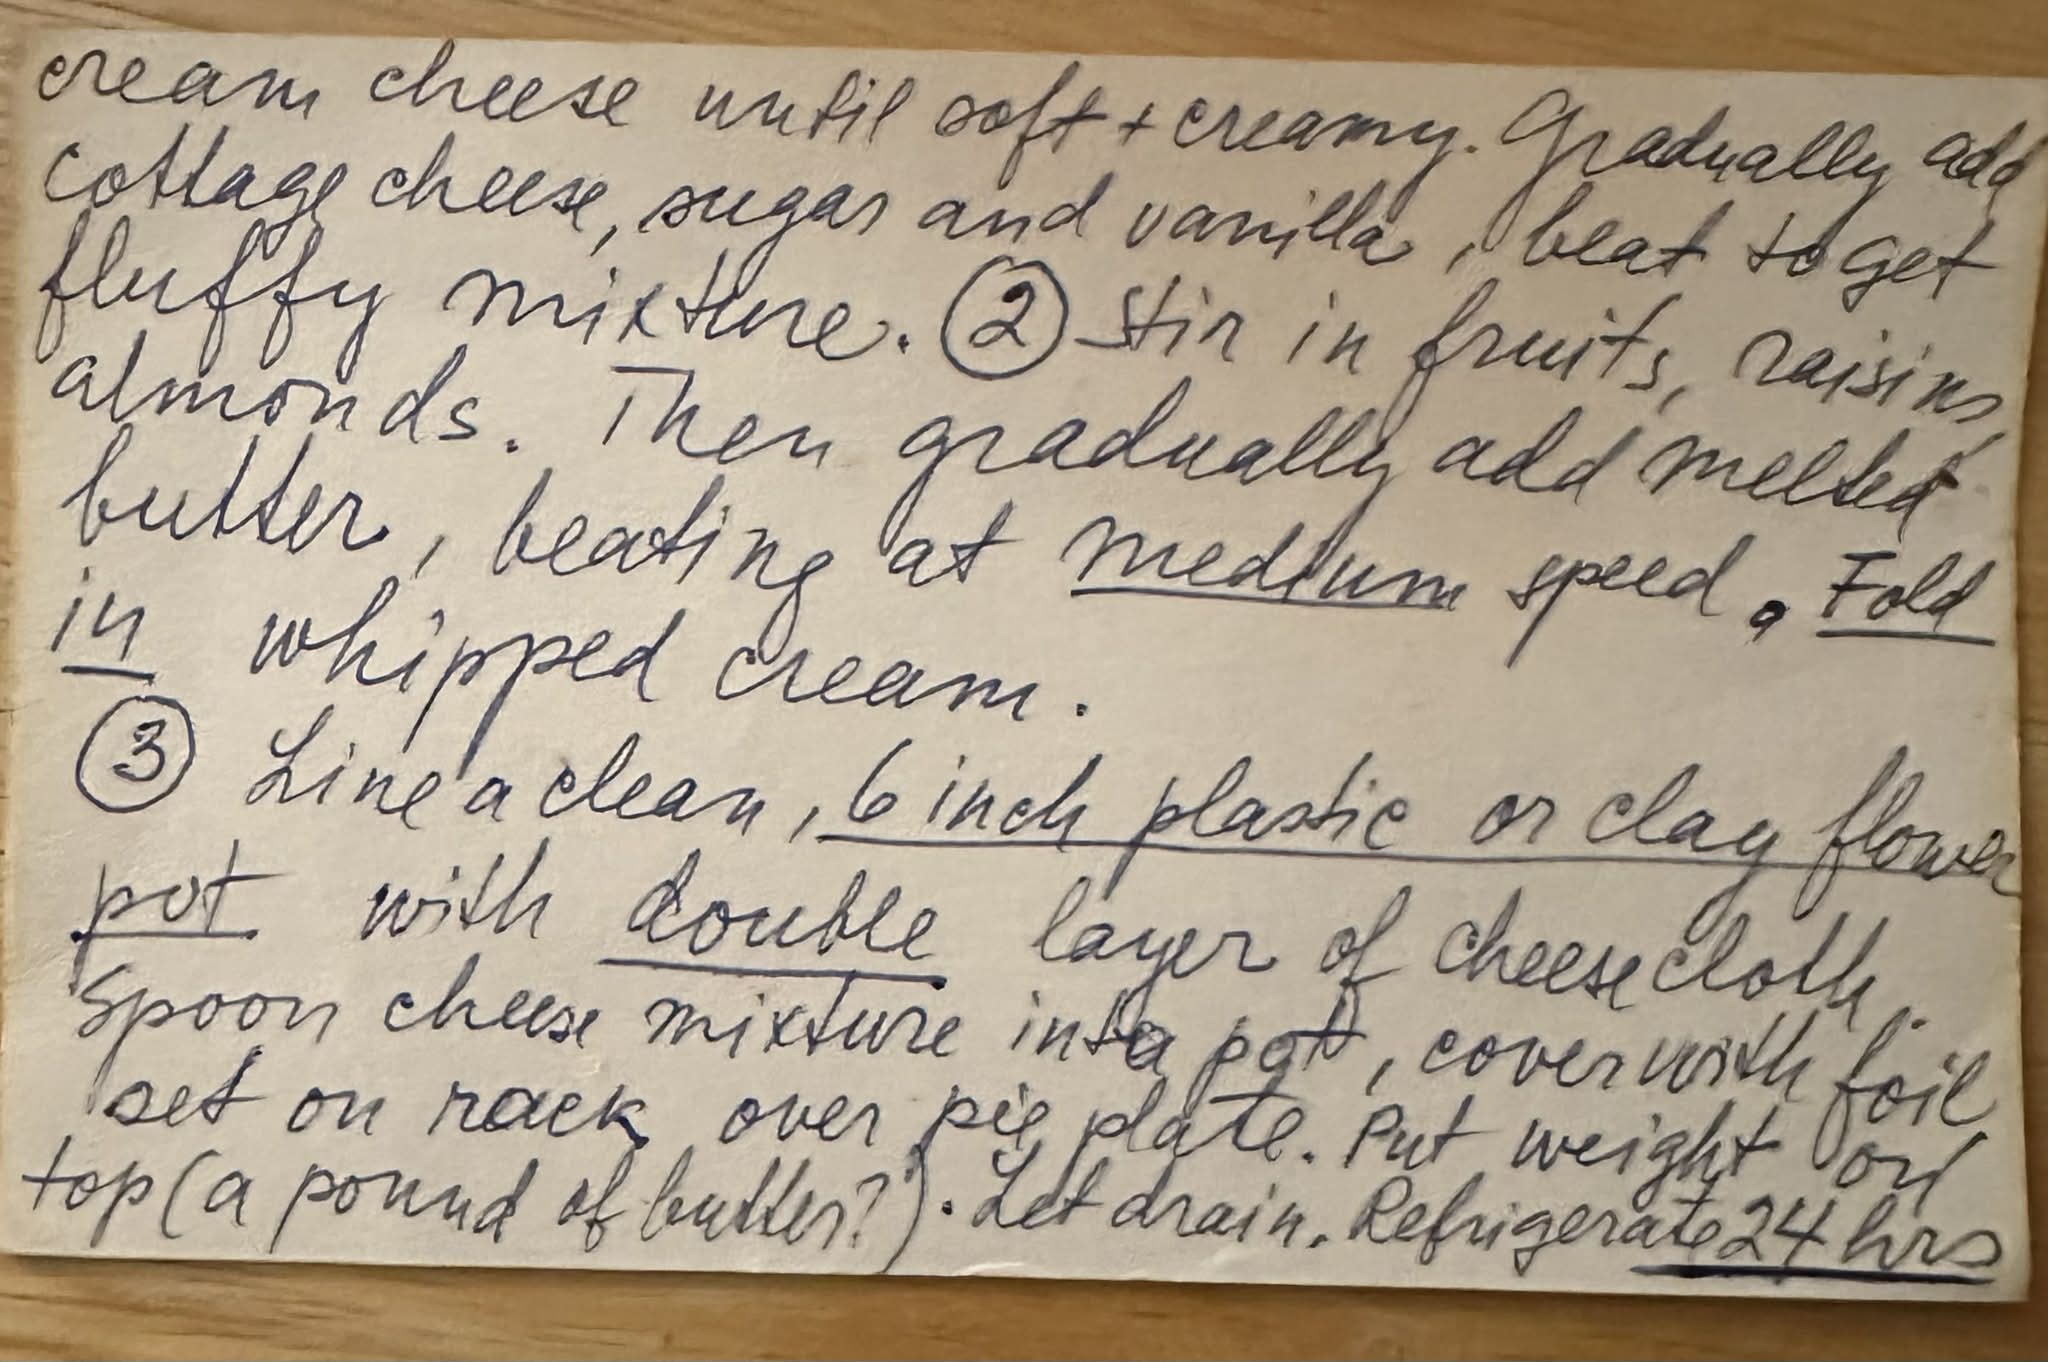 cream cheese until soft + creamy. Gradually add
cottage cheese, sugar and vanilla, beat to get
fluffy mixture. ② Stir in fruits, raisins,
almonds. Then gradually add melted
butter, beating at medium speed. Fold
in whipped cream.
③ Line a clean, 6 inch plastic or clay flower
pot with double layer of cheesecloth.
Spoon cheese mixture into pot, cover with foil
set on rack over pie plate. Put weight on
top (a pound of butter?). Let drain. Refrigerate 24 hrs